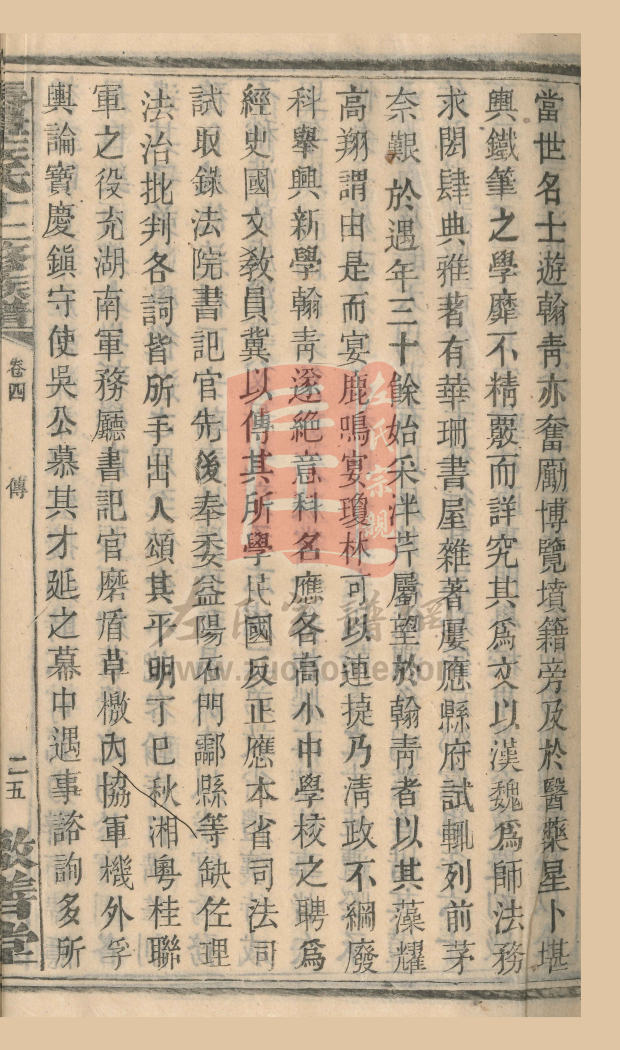 當世名士遊翰靑亦奮勵博覽墳籍旁及於醫藥星卜堪
輿鐵筆之學靡不精覈而詳究其爲文以漢魏爲師法務
求閎肆典雅著有華珊書屋雜著屢應縣府試輒列前茅
奈艱於遇年三十餘始采泮芹屬望於翰靑者以其藻耀
高翔謂由是而宴鹿鳴宴瓊林可以連捷乃淸政不綱廢
科舉興新學翰靑遂絕意科名應各高小中學校之聘爲
經史國文敎員冀以傳其所學民國反正應本省司法司
試取錄法院書記官先後奉委益陽石門酃縣等缺佐理
法治批判各詞皆所手出人頌其平明丁巳秋湘粤桂聯
軍之役充湖南軍務廳書記官磨盾草檄內協軍機外孚
輿論寶慶鎭守使吳公慕其才延之幕中遇事諮詢多所
氏十二修族譜
卷四
傳
二五
善堂
左氏宗親